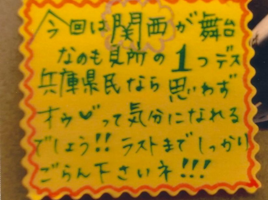 今回は関西が舞台
なのも見所の1つデス
兵庫県民なら思わず
オウ♥って気分になれる
でしょう!! ラストまでしっかり
ごらん下さいネ!!!